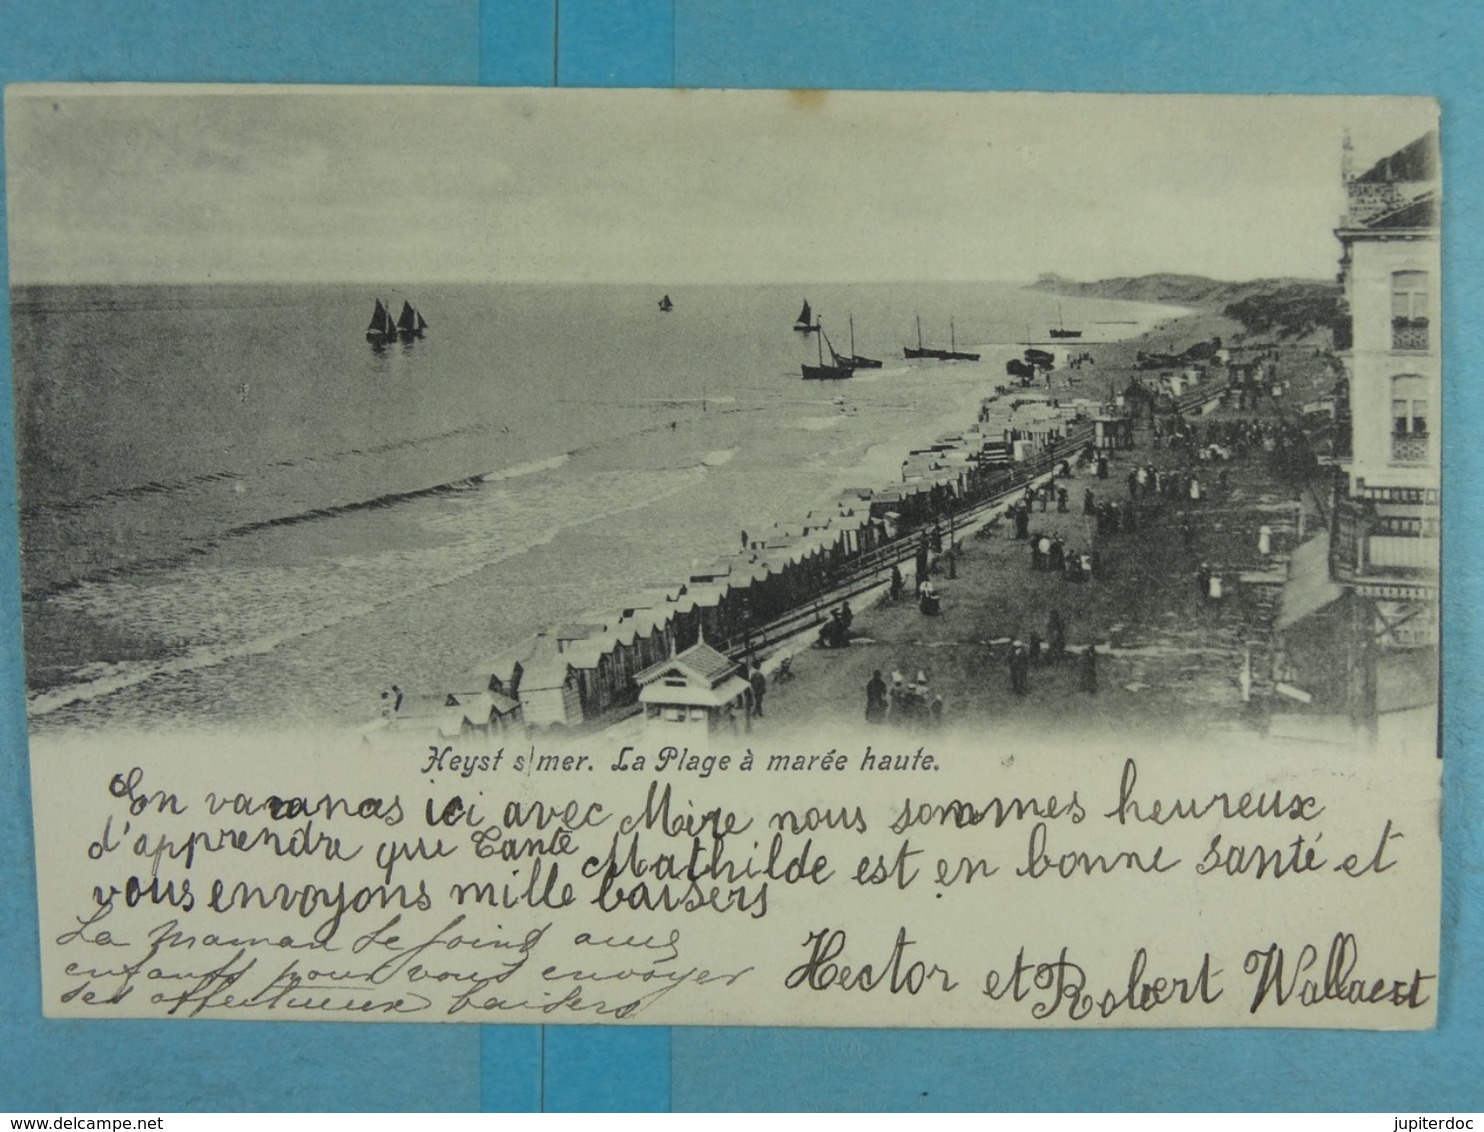 GRAND HOTEL
DE LA
Heyst s/mer. La Plage à marée haute.
En vacances ici avec Mère nous sommes heureux
d'apprendre que Tante Mathilde est en bonne santé et
vous envoyons mille baisers
La maman se joint aux
enfants pour vous envoyer
ses affectueux baisers
Hector et Robert Wallaert
delcampe.net
jupiterdoc